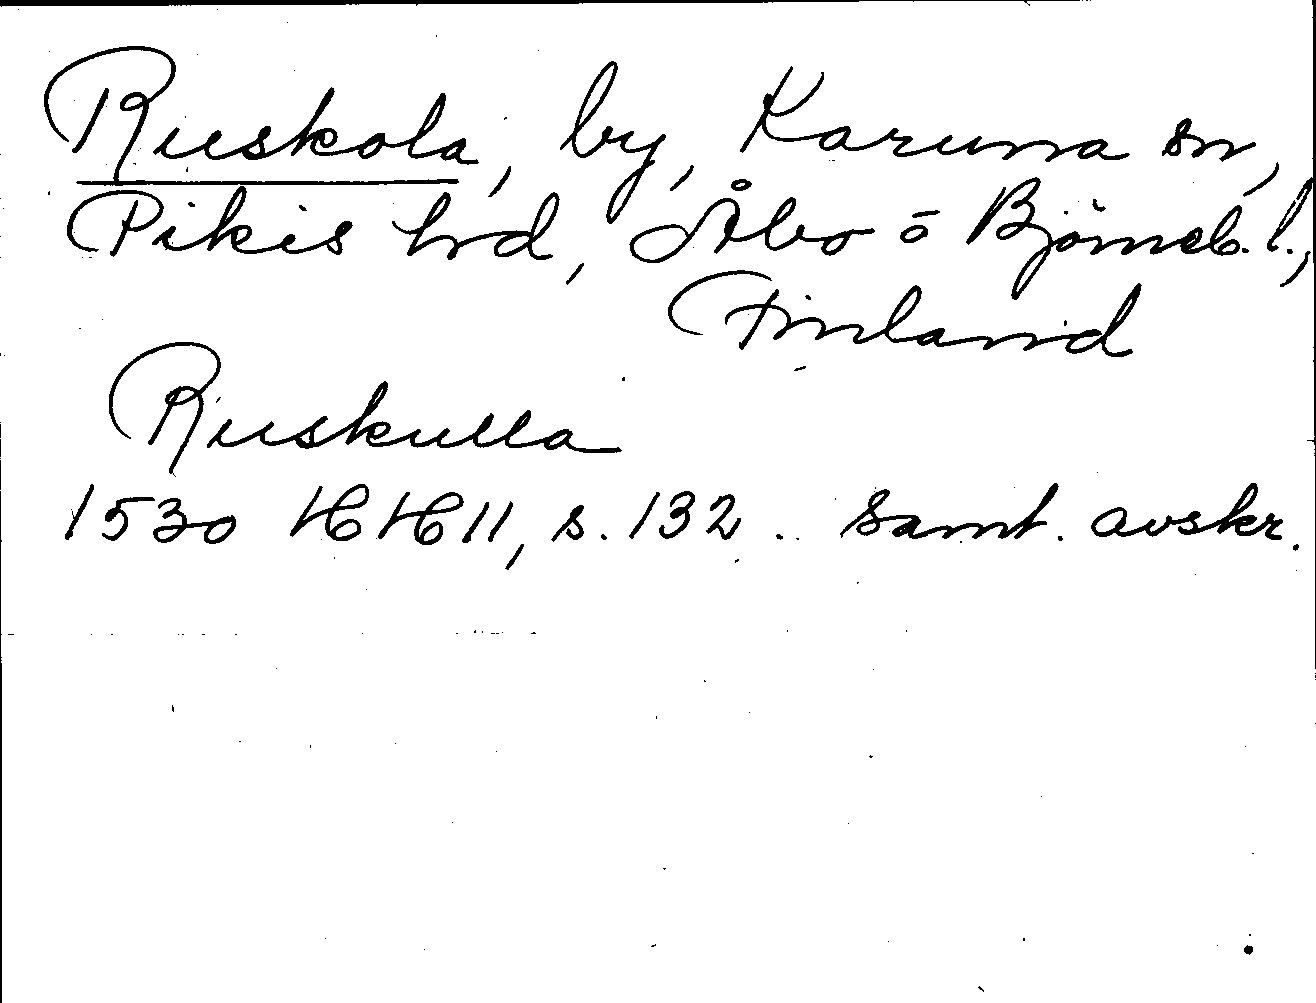 Ruskola, by, Karuna sn,
Pikis hrd, Åbo o Björneb. l.,
Finland
Ruskulla
1530 HH11, s. 132. samt. avskr.